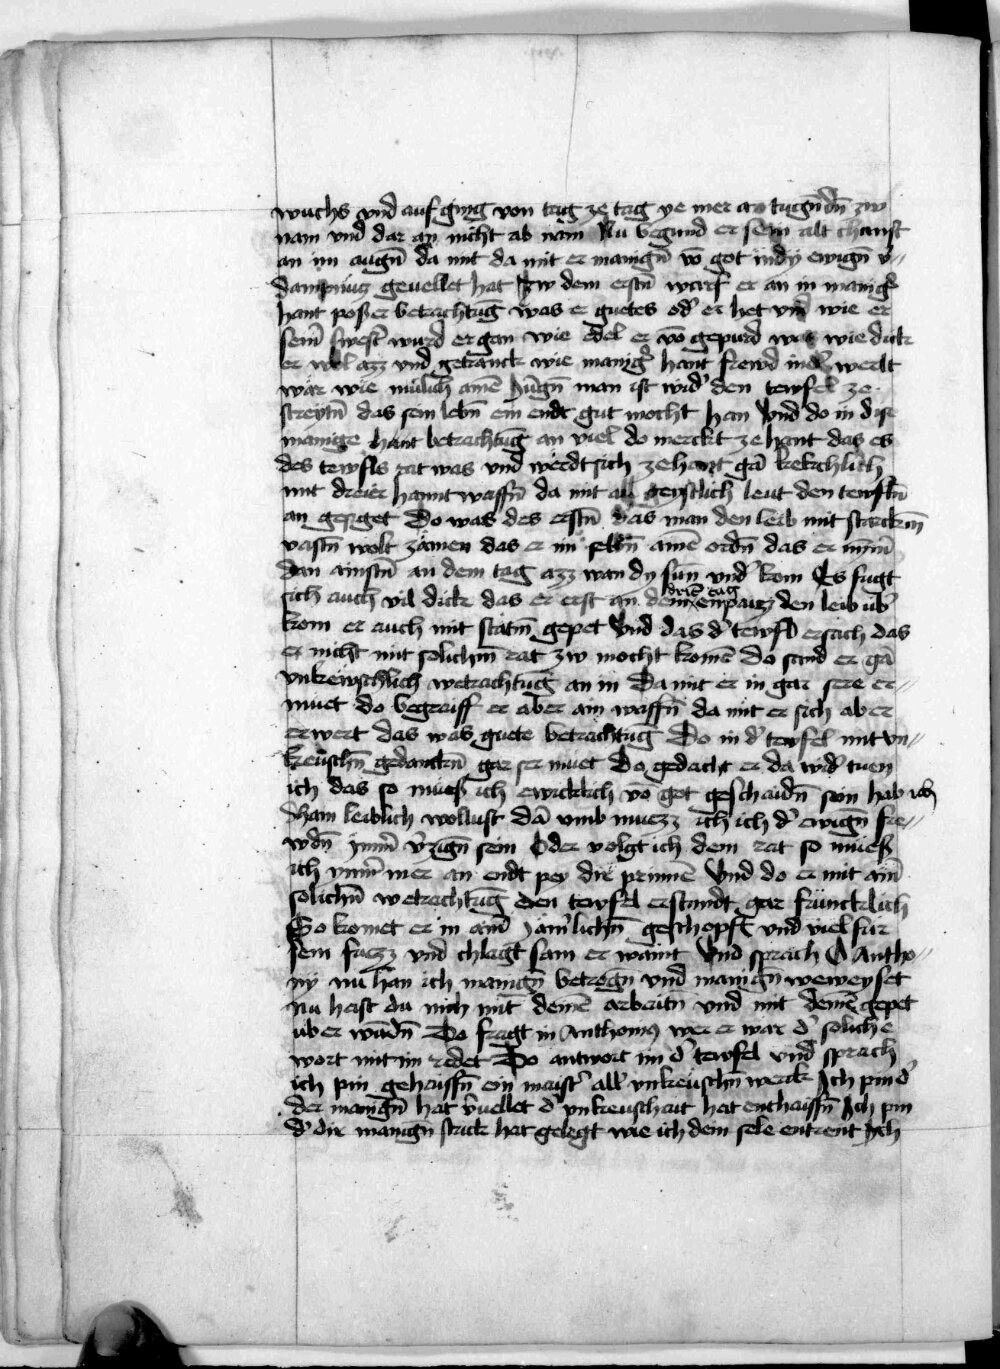 wuchs vnd auf ging von tag ze tag ye mer an tugn̄ dn̄ zw
nam vnd dar an nicht ab nam Nu begund er sein alt chunst
an im augn̄ da mit da mit er manign̄ vō got in dÿ ewign̄ v̓〃
dampnusz geuellet hat Zw dem erstn̄ warf er an in manig̓
hant poser betrachtūg was er guetes od̓ er het vm̄ wie er
sein̄ swest̓ wurd ergan wie edel er vō gepurd was wie dick
er wol azz vnd getranck wie manig̓ hant frewd in d̓ werlt
wār wie mūlich ainē Jūgn̄ man ist wid̓ den tewfel ze
streÿtn̄ das sein lebn̄ ein endt gut mocht han Vnd do in dise
manige hant betrachtūg an viel do merckt ze hant das es
des tewfls rat was vnd werdt sich ze hant gā kekchlich
mit dreier hannt waffn̄ da mit all geystlich leut den tewfln̄
an gesiget Do was des erstn̄ das man den leib mit starckm̄
vastn̄ wolt zamen das er im selbn̄ ainē ordn̄ das er nym̄
dan ainstn̄ an dem tag azz wan dy sun vnd̓ kom Es fugt
sich auch vil dick das er erst an dem driten tag enpaizz den leib ub̓
kom er auch mit statm̄ gepet Vnd das d̓ tewfl ersach das
er nicht mit solichm̄ rat zw mocht komē Do sand er gā
vnkewschlich wetrachtūg an in Da mit er in gar sere er〃
muet do begraiff er aber ain waffn̄ da mit er sich aber
erwert das was guete betrachtūg Do in d̓ tewfel mit vn〃
kewschn̄ gedanckn̄ gar ser muet Do gedacht er da wid̓ tuen
ich das so mues ich ewicklich vō got geschaidn̄ sein hab ich
dhain leiblich wollust dā vmb muezz ich ich d̓ ewign̄ fre〃
wdn̄ ÿm̄ v̓zign̄ sein Oder volgt ich dem rat so mues
ich ym̄ mer an endt pey dir prinnē Vnd do er mit ain̄
solichn̄ wetrachtūg den tewfel erstandt gar frūncklich
So komet er in ain̄ Jāmlichn̄ geschopft vnd viel fur
sein fuezz vnd chlagt sam er waint Vnd sprach O Antho〃
ny nu han ich manign̄ betrogn̄ vnd manign̄ weweyset
nu hast du mich mit deinē arbeitn̄ vnd mit deinē gepet
uber wūdn̄ Do fragt in Anthonius wer er war d̓ soliche
wort mit im redet Do antwort im d̓ tewfel vnd sprach
ich pin gehaissn̄ ein maist̓ all̓ vnkeuschn̄ werck Ich pin d̓
der manign̄ hat v̓uellet d̓ vnkeuschait hat enthaissn̄ Ich pin
d̓ dir manign strick hat gelegt wie ich dein sele entrent Ich